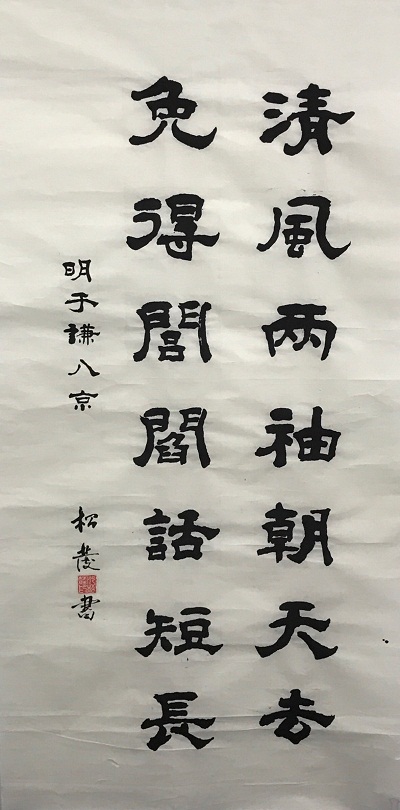 清風两袖朝天去
免得閭閻話短長
明于謙入京
松陵書